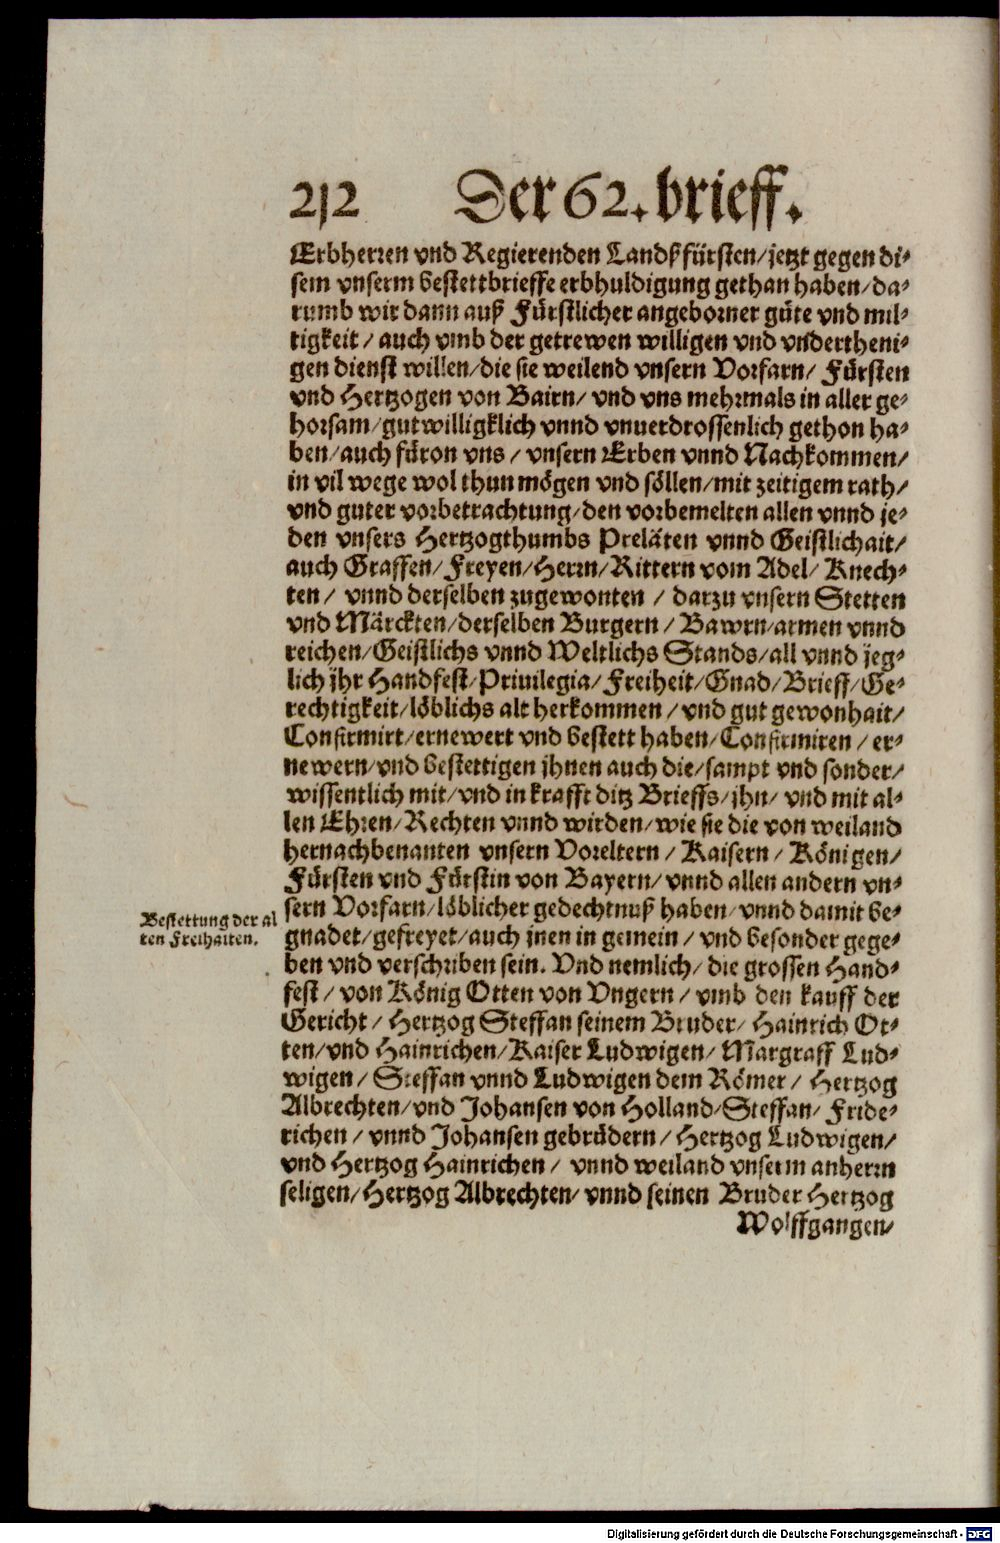 212 Der 62. brieff.
Erbherren vnd Regierenden Landßfürsten/jetzt gegen di⸗
sem vnserm bestettbrieffe erbhuldigung gethan haben/da⸗
rumb wir dann auß Fürstlicher angeborner güte vnd mil⸗
tigkeit/ auch vmb der getrewen willigen vnd vndertheni⸗
gen dienst willen/die sie weilend vnsern Vorfarn/ Fürsten
vnd Hertzogen von Bairn/ vnd vns mehrmals in aller ge⸗
horsam/gutwilligklich vnnd vnuerdrossenlich gethon ha⸗
ben/auch füron vns/ vnsern Erben vnnd Nachkommen/
in vil wege wol thun mögen vnd söllen/mit zeitigem rath/
vnd guter vorbetrachtung/den vorbemelten allen vnnd je⸗
den vnsers Hertzogthumbs Preläten vnnd Geistlichait/
auch Graffen/ Freyen/Herrn/Rittern vom Adel/ Knech⸗
ten/ vnnd derselben zugewonten/ darzu vnsern Stetten
vnd Märckten/derselben Burgern/ Bawrn/armen vnnd
reichen/Geistlichs vnnd Weltlichs Stands/all vnnd jeg⸗
lich jhr Handfest/Priuilegia/ Freiheit/Gnad/Brieff/Ge⸗
rechtigkeit/löblichs alt herkommen/ vnd gut gewonhait/
Confirmirt/ernewert vnd bestett haben/Confirmiren/ er⸗
newern/vnd bestettigen jhnen auch die/sampt vnd sonder/
wissentlich mit/vnd in krafft ditz Brieffs/jhn/ vnd mit al⸗
len Ehren/Rechten vnnd wirden/wie sie die von weiland
hernachbenanten vnsern Voreltern/ Kaisern/ Königen/
Fürsten vnd Fürstin von Bayern/ vnnd allen andern vn⸗
sern Vorfarn/löblicher gedechtnuß haben/vnnd damit be⸗
Bestettung der al
ten Freihaiten.
gnadet/gefreyet/auch jnen in gemein/ vnd besonder gege⸗
ben vnd verschriben sein. Vnd nemlich/die grossen Hand⸗
fest/ von König Otten von Vngern/ vmb den kauff der
Gericht/ Hertzog Steffan seinem Bruder/ Hainrich Ot⸗
ten/vnd Hainrichen/Kaiser Ludwigen/ Margraff Lud⸗
wigen/ Steffan vnnd Ludwigen dem Römer/ Hertzog
Albrechten/vnd Johansen von Holland/Steffan/ Fride⸗
richen/ vnnd Johansen gebrüdern/ Hertzog Ludwigen/
vnd Hertzog Hainrichen/ vnnd weiland vnserm anherrn
seligen/Hertzog Albrechten/ vnnd seinen Bruder Hertzog
Wolffgangen/
Digitalisierung gefördert durch die Deutsche Forschungsgemeinschaft - DFG